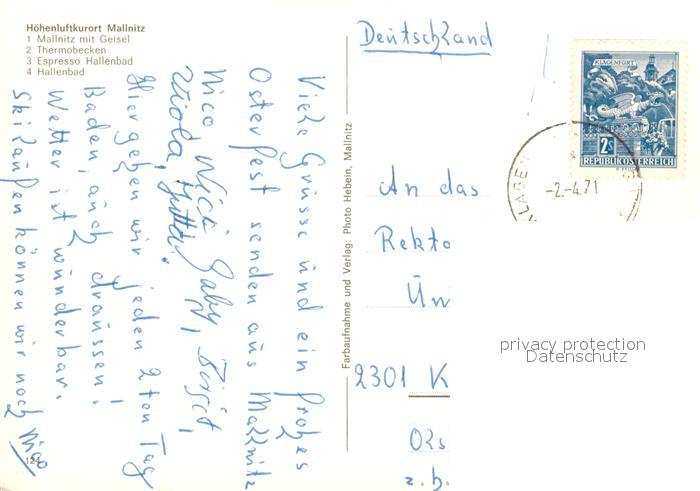 Höhenluftkurort Mallnitz
1 Mallnitz mit Geisel
2 Thermobecken
3 Espresso Hallenbad
4 Hallenbad
Viele Grüsse und ein frohes
Osterfest senden aus Mallnitz
Nico Nicki Gaby, Birgit,
Viola, Jutta.
Hier gehen wir jeden 2ten Tag
Baden, auch draussen!
Wetter ist wunderbar.
Skilaufen können wir noch
Nico
124
Farbaufnahme und Verlag: Photo Hebein, Mallnitz
Deutschland
KLAGENFURT
2S
REPUBLIK ÖSTERREICH
KLAGEN
-2.-4.71
An das
Rekto
Un
2301 K
Ols
z.h.
privacy protection
Datenschutz